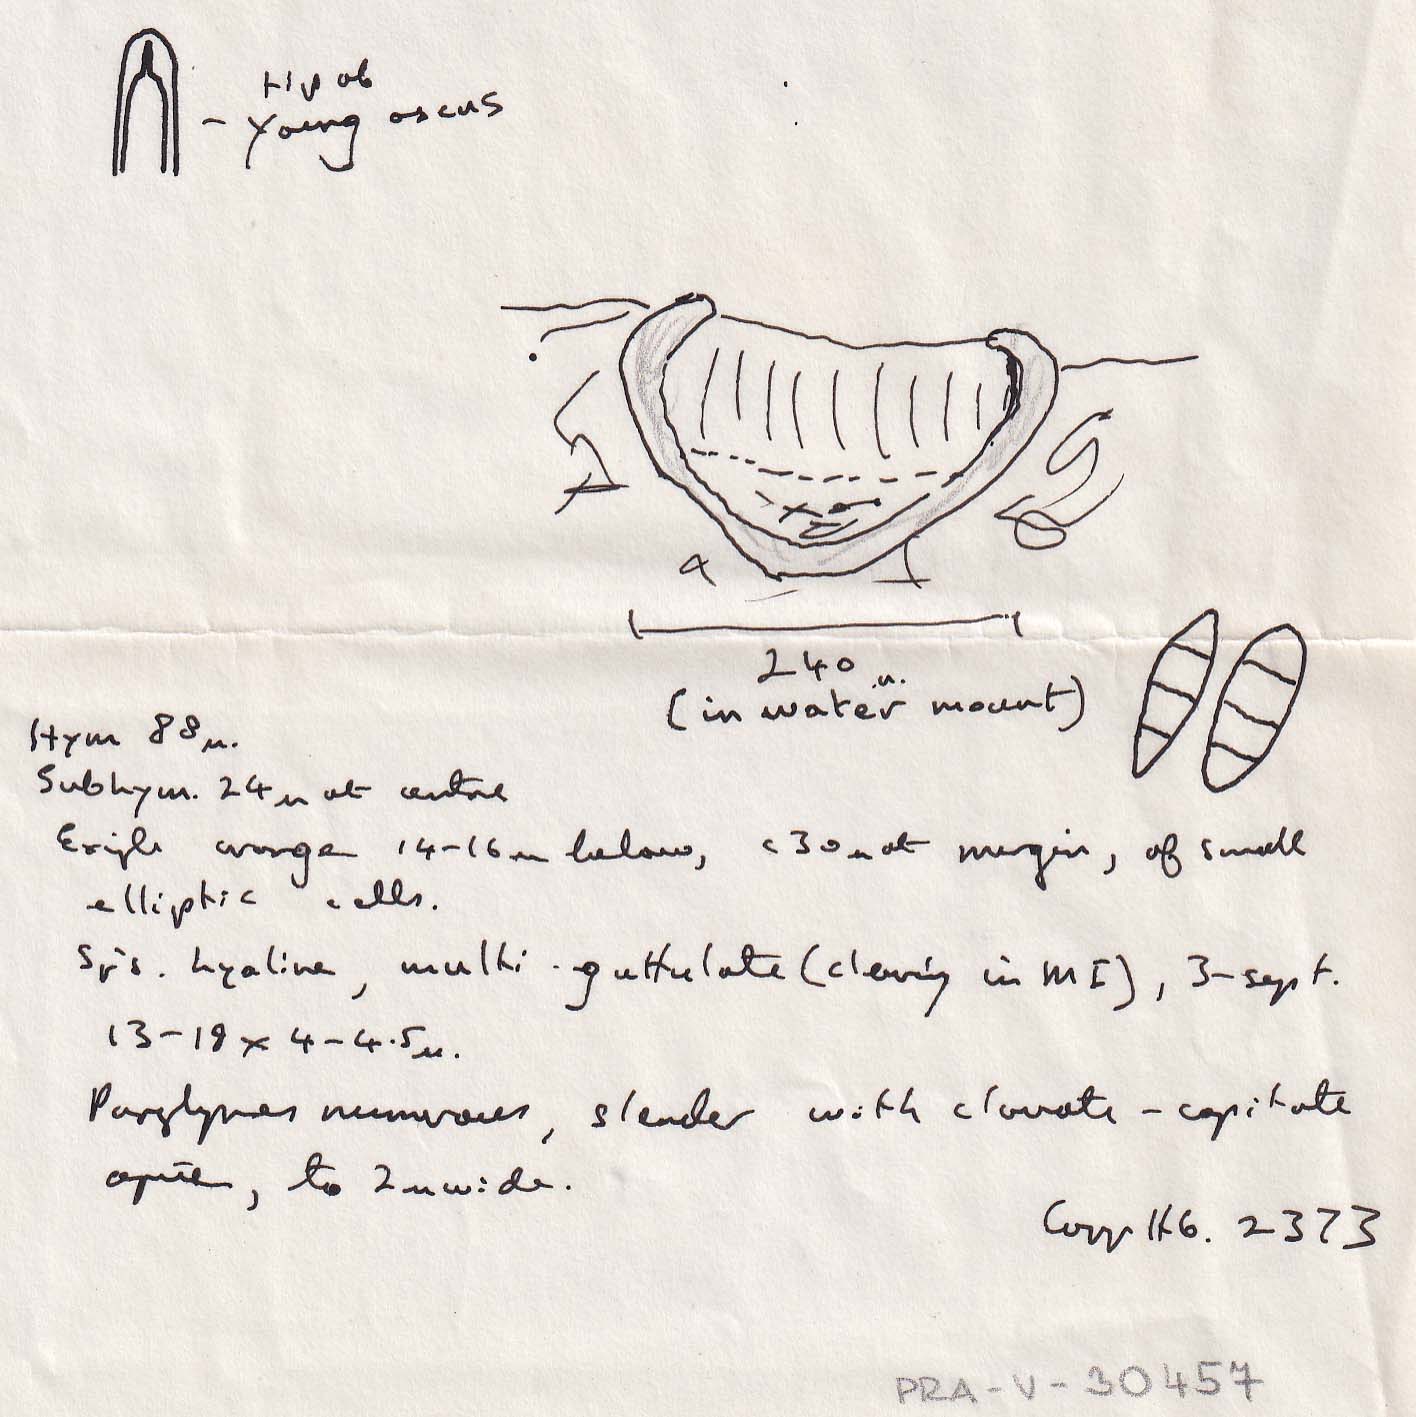 tip of
young ascus
240 µ.
(in water mount)
Hym 88µ.
Subhym. 24µ at centre
Exiple average 14-16µ below, c30µ at margin, of small
elliptic cells.
Sp's. hyaline, multi-guttulate (clearing in MI), 3-sept.
13-18 x 4-4.5µ.
Paraphyses numerous, slender with clavate-capitate
apices, to 2µ wide.
Copp HG. 2373
PRA-V-30457